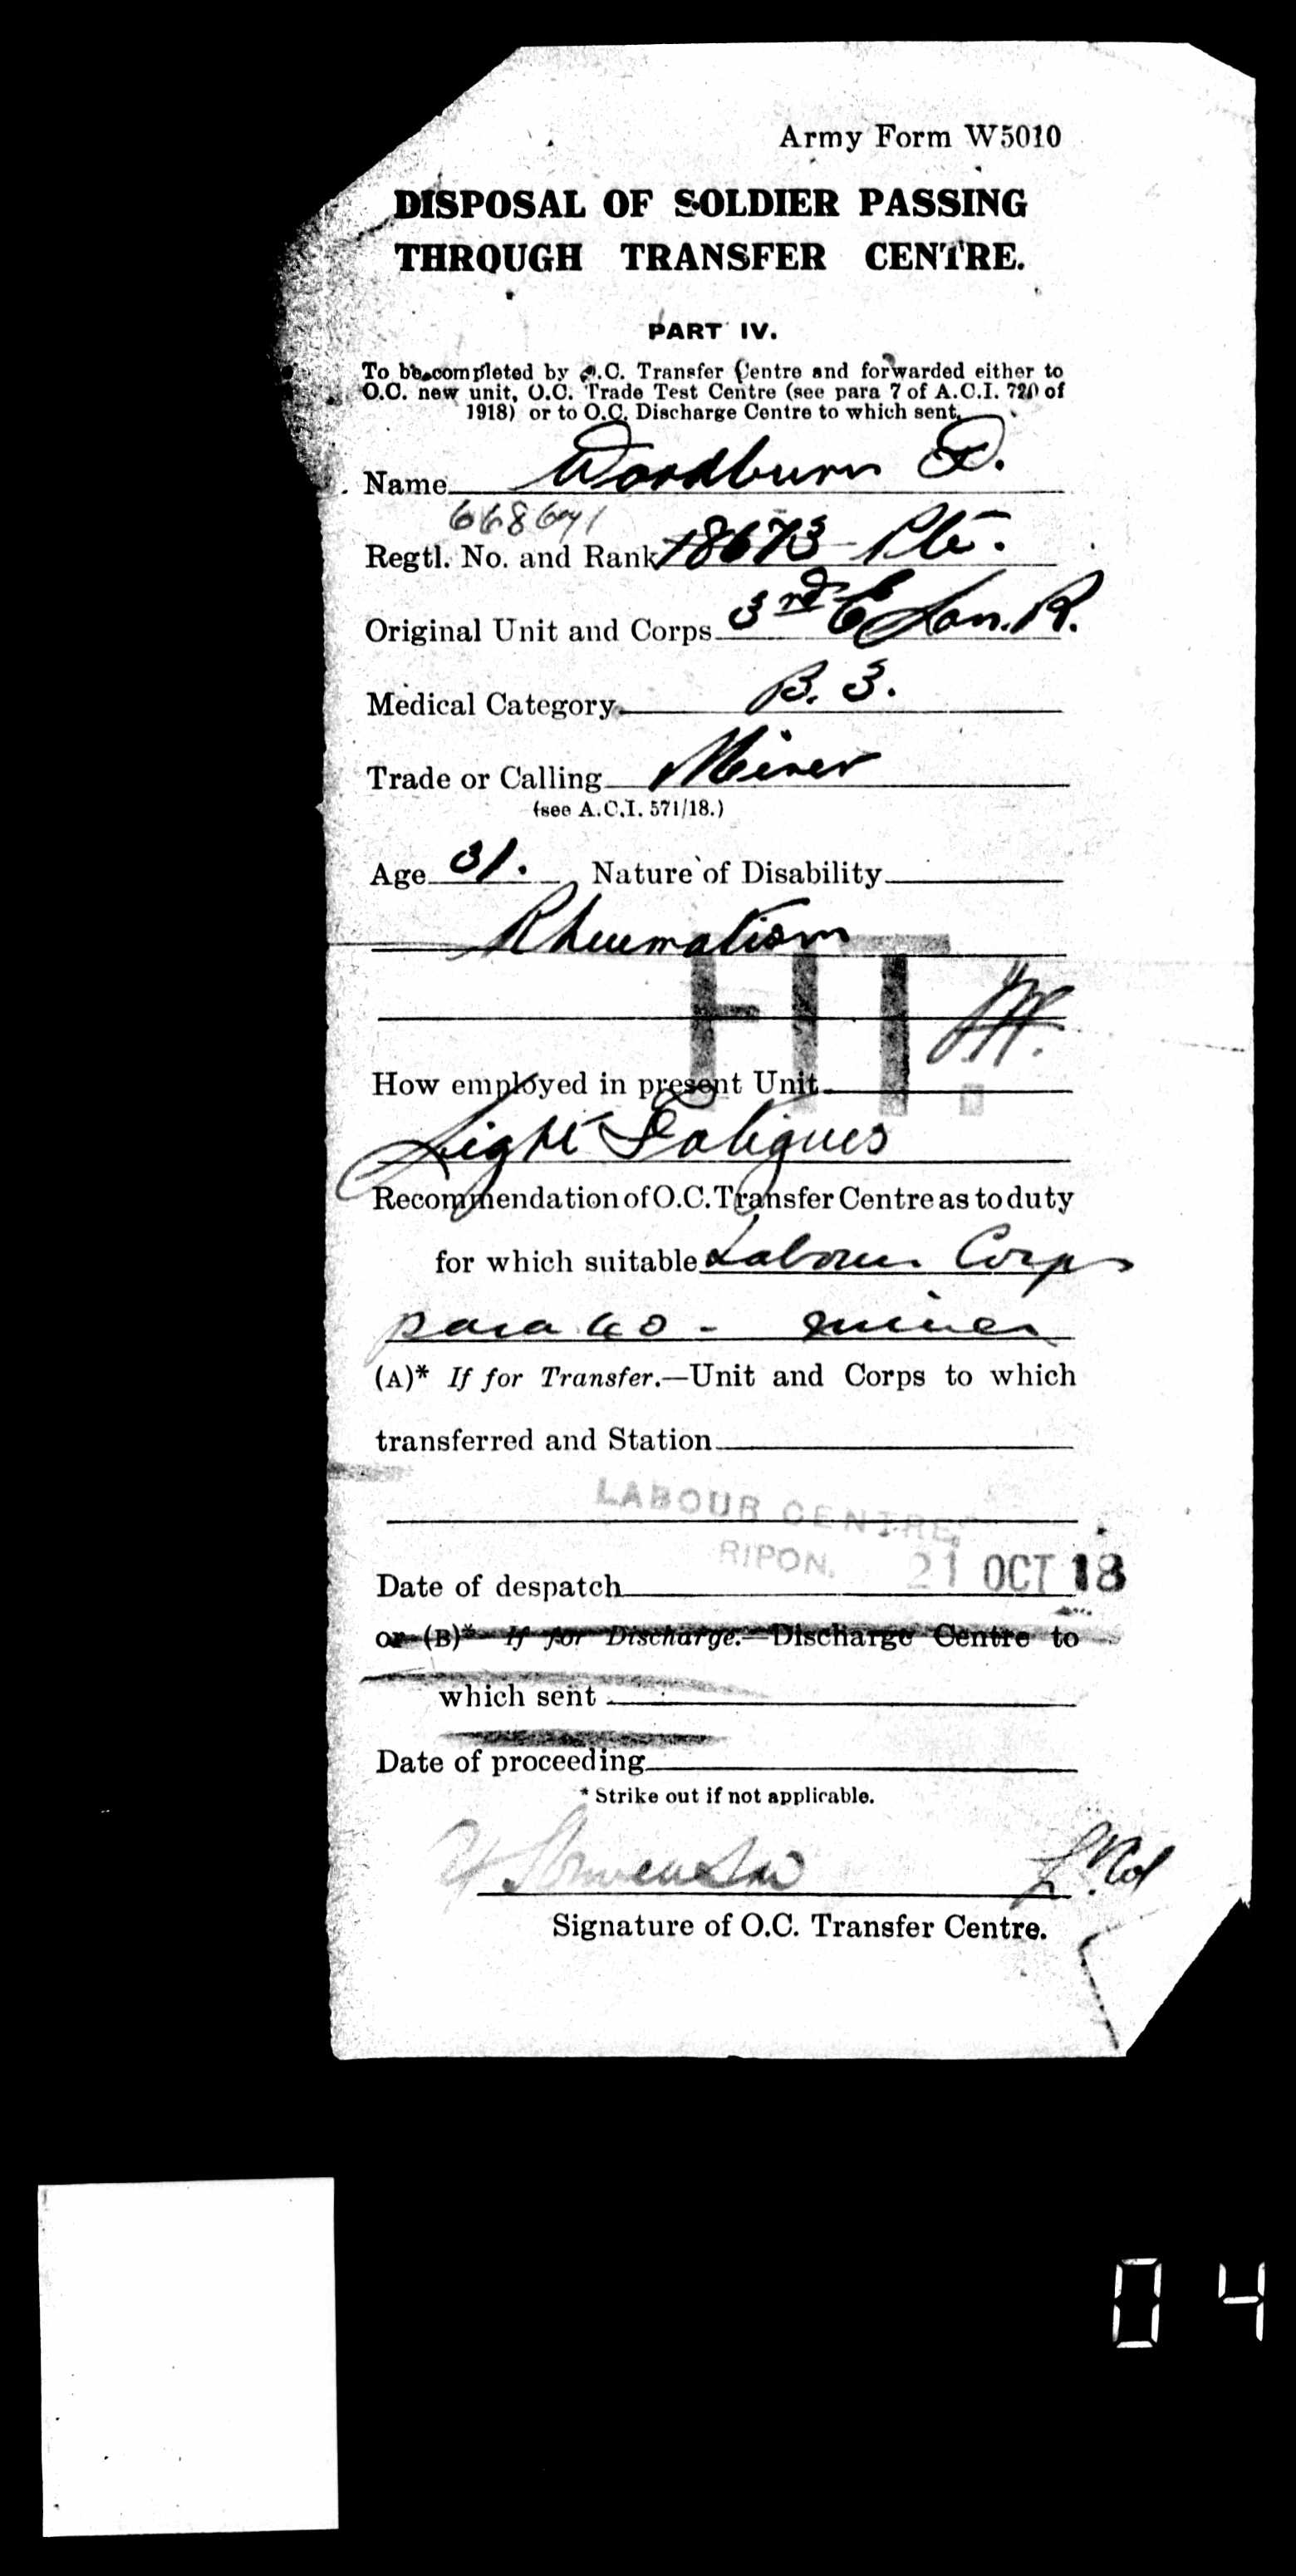 Army Form W5010
DISPOSAL OF SOLDIER PASSING
THROUGH TRANSFER CENTRE.
PART IV.
To be completed by O.C. Transfer Centre and forwarded either to
O.C. new unit, O.C. Trade Test Centre (see para 7 of A.C.I. 720 of
1918) or to O.C. Discharge Centre to which sent.
Name Woodburn
668691
Regtl. No. and Rank 18673 Pte.
Original Unit and Corps 3rd E Lan. R.
Medical Category B. 3.
Trade or Calling Miner
(see A.C.I. 571/18.)
Age 31. Nature of Disability
Rheumatism
How employed in present Unit
Light Fatigues
Recommendation of O.C. Transfer Centre as to duty
for which suitable Labour Corps
para 60 - miner
(A)* If for Transfer.—Unit and Corps to which
transferred and Station
LABOUR CENTRE,
RIPON. 21 OCT 18
Date of despatch
or (B)* If for Discharge.—Discharge Centre to
which sent
Date of proceeding
* Strike out if not applicable.
Lt Col
Signature of O.C. Transfer Centre.
04